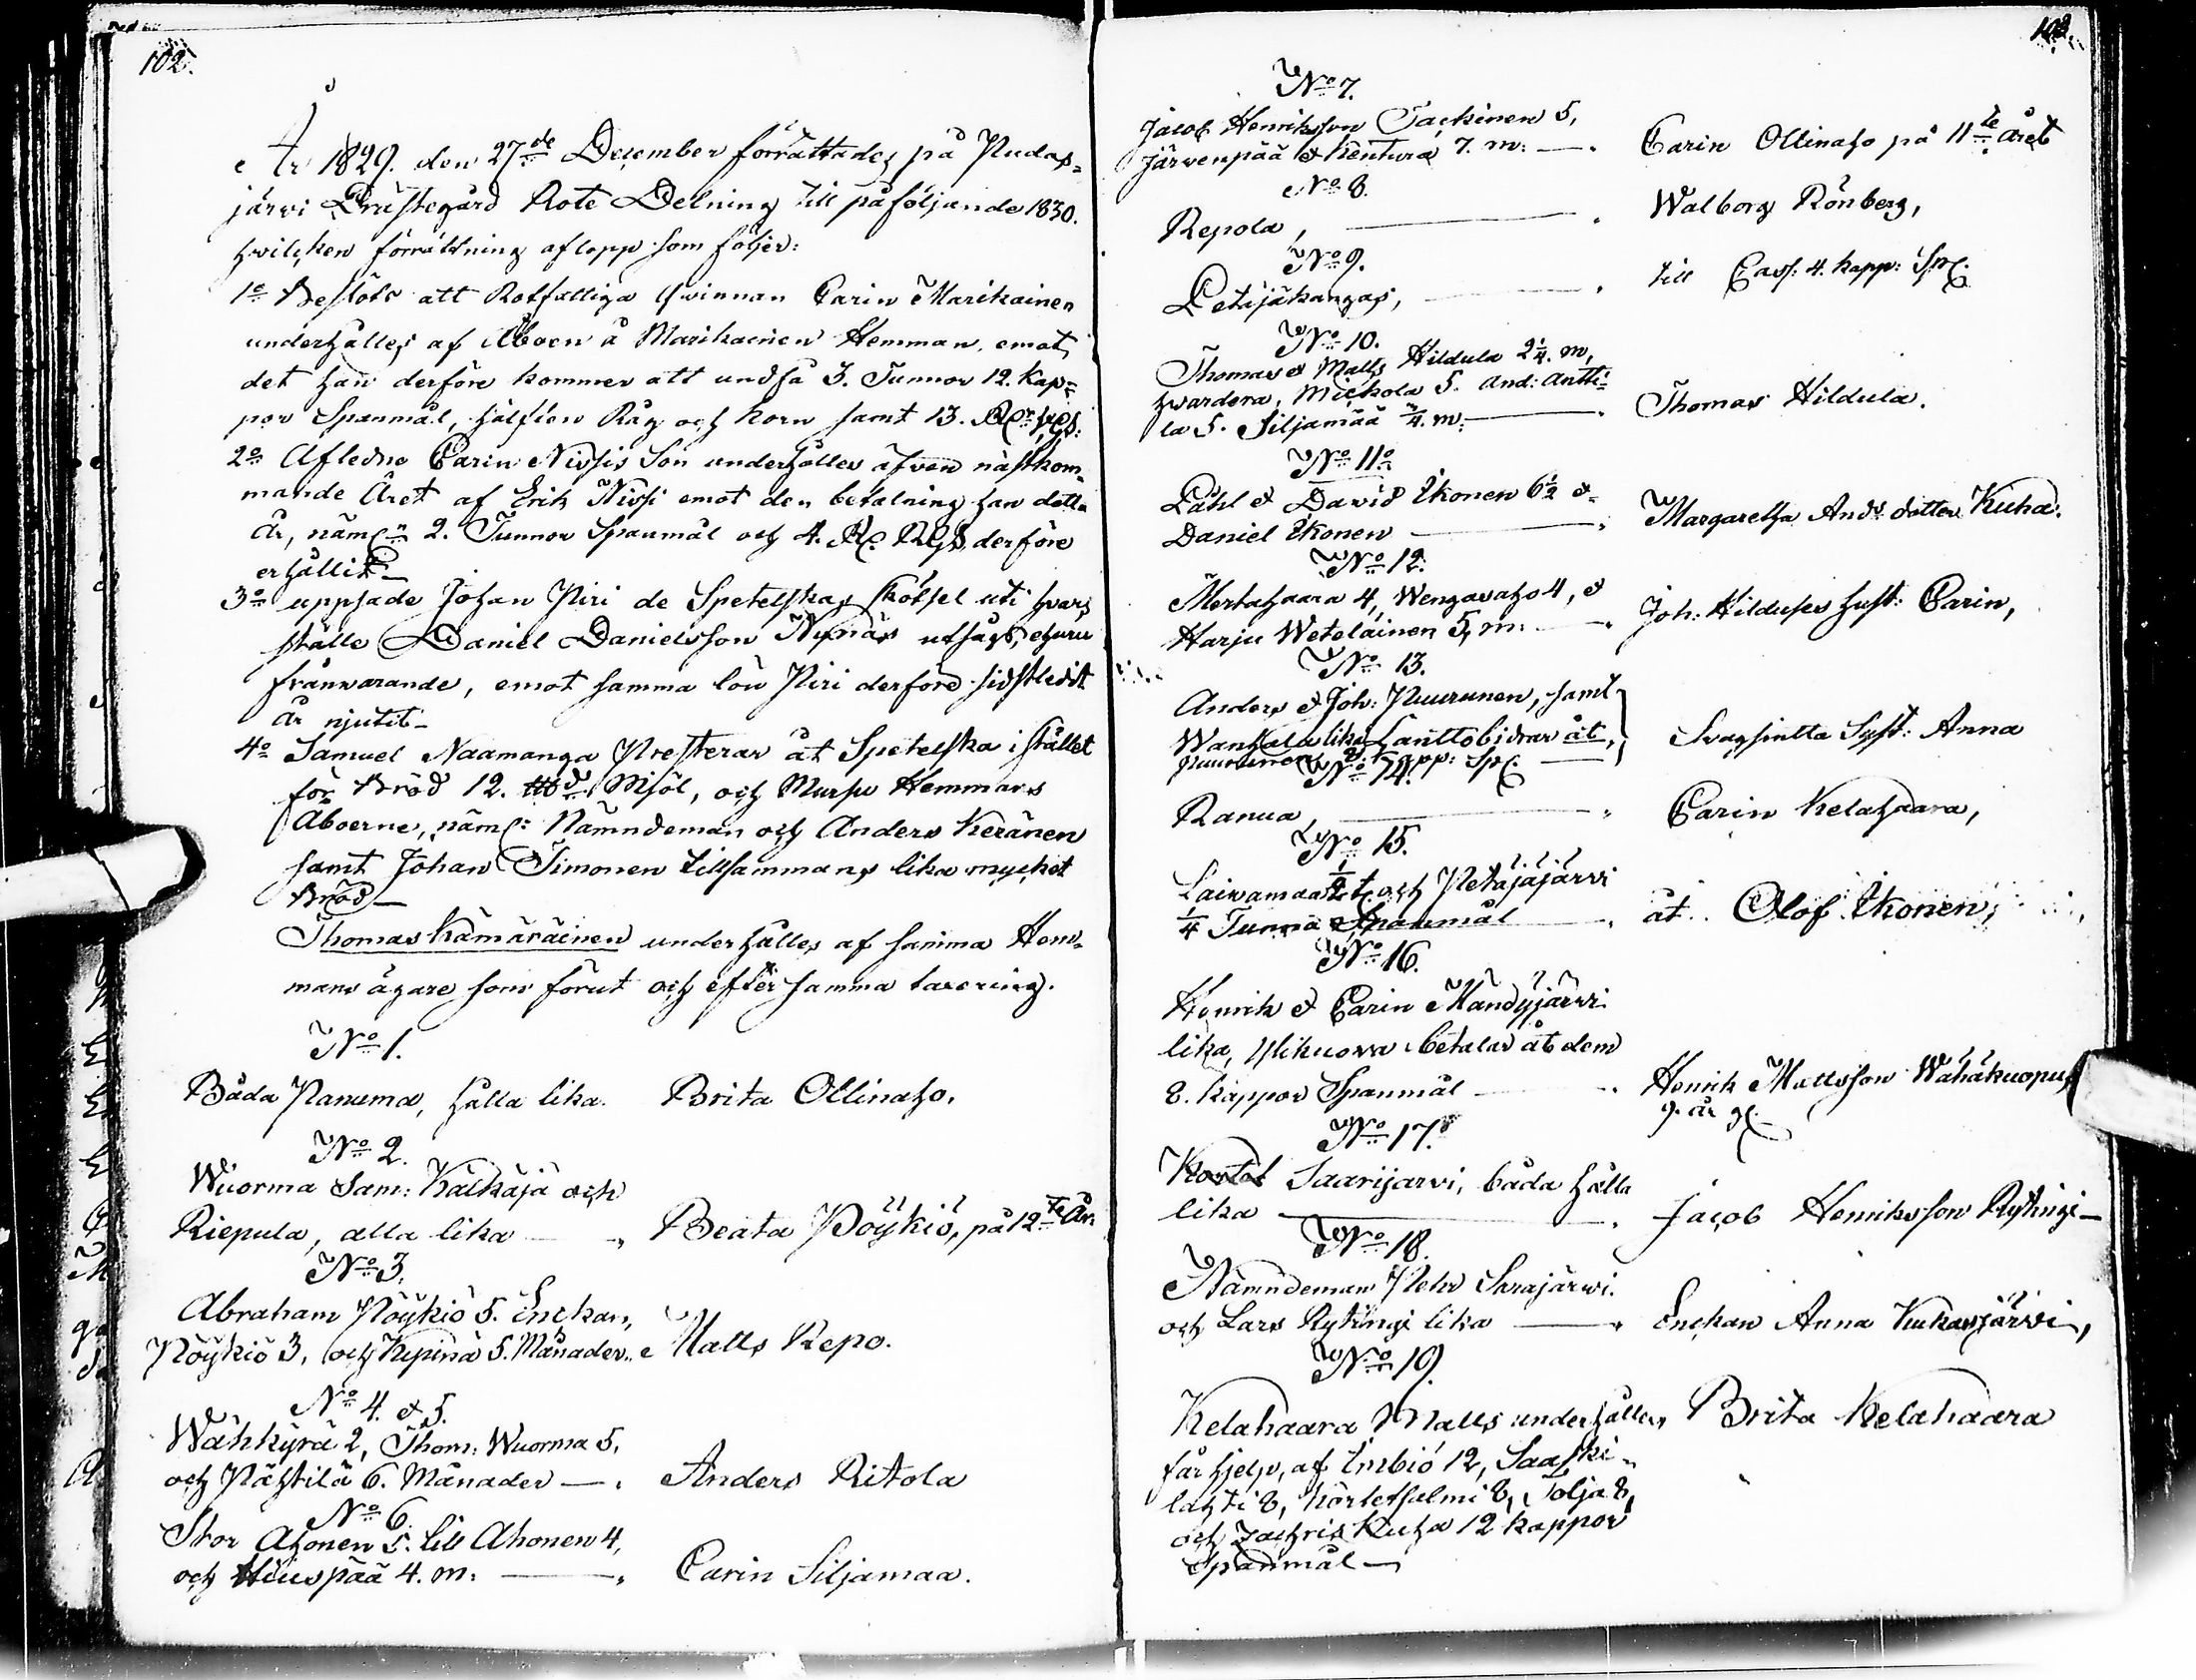 102.
År 1829. den 27de December förrättades på Pudas-
järvi Prästegård Rote Delning till påföljande 1830.
hvilcken förrättning aflopp som följer:
1o Beslöts att Rotfattiga Qvinnan Carin Marikainen
underhålles af Åboen å Marikainen Hemman, emot
det han derföre kommer att undfå 3. Tunnor 12. kap-
por Spanmål, hälften Råg och korn samt 13. Rr
2o Afledne Carin Nivsis Son underhålles äfven nästkom-
mande Året af Erik Nivsi emot den betalning han detta
År, näml. 2. Tunnor Spanmål och 4. R. RGS derföre
erhållit
3o uppsade Johan Piri de Spetelskas skötsel uti hvars
ställe Daniel Danielsson Nynäs utsågs, ehuru
frånvarande, emot samma lön Piri derföre sidstledit
År njutit
4o Samuel Naamanga Presterar åt Spetelska i stället
för Bröd 12. Mjöl, och Mursu Hemmans
Åboerne, näml: Nämndeman och Anders Keränen
samt Johan Timonen tillsammans lika mycket
Bröd
Thomas Kämäräinen underhålles af samma Hem-
mans ägare som förut och efter samma taxering.
No 1.
Båda Panuma, hålla lika. Brita Ollinaho.
No 2.
Wuorma Sam: Kälkäjä och
Riepula, alla lika Beata Pöykiö, på 12te År.
No 3.
Abraham Pöykiö 5. Enckan,
Pöykiö 3, och Kipinä 5. Månader. Matts Repo.
No 4. et 5.
Wähkyrä 2, Thom: Wuorma 5,
och Pähtilä 6. Månader Anders Ritola
No 6.
Stor Ahonen 5. lill Ahonen 4,
och Hiuspää 4. m: Carin Siljamaa.
103.
No 7.
Jacob Henriksson Tackinen 5,
Järvenpää et Kentura 7. m: Carin Ollinaho på 11te Året
No 8.
Repola, Walborg Rönberg,
No 9.
Petäjäkangas, till Cass. 4. kapp: Sp.
No 10.
Thomas et Matts Hildula 2 1/4. m,
hvardera, Mickola 5. And: Antti-
la 5. Siljamää 1/4. m. Thomas Hildula.
No 11o
Påhl et David Ikonen 6 1/2 et
Daniel Ikonen Margaretha Ands dotter Kuha.
No 12.
Mertahaara 4, Wengasaho 4, et
Harju Weteläinen 5, m: Joh: Hildulas hust: Carin,
No 13.
Anders et Joh: Puurunen, samt
Wanhala lika Lanttobidrar åt,
Puurunen kapp: Sp. Syst: Anna
No 14.
Ranua, Carin Kelahaara,
No 15.
Laivamaa 1/2 t. och Petäjäjärvi
1/4 Tunna Spanmål åt Olof Ikonen,
No 16.
Henrik et Carin Mandyjärvi
lika, Ylikuova betalar åt dem
8. kappor Spanmål Henrik Mattsson Wähäkuopus
9. år gl.
No 17.
Kortet Saarijärvi, båda hålla
lika Jacob Henriksson Rytingi
No 18.
Nämndeman Pehr Sarajärvi
och Lars Rytingi lika Enckan Anna Kuukasjärvi,
No 19.
Kelahaara Matts underhåller, Brita Kelahaara
får hjelp, af Imbiö 12, Saaski-
lahti 8, Körtetsalmi 8, Tolja 8,
och Zachris Kuha 12 kappor
Spanmål